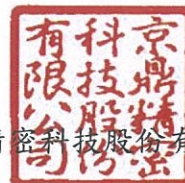 京鼎精密
科技股份
有限公司
精密科技股份有